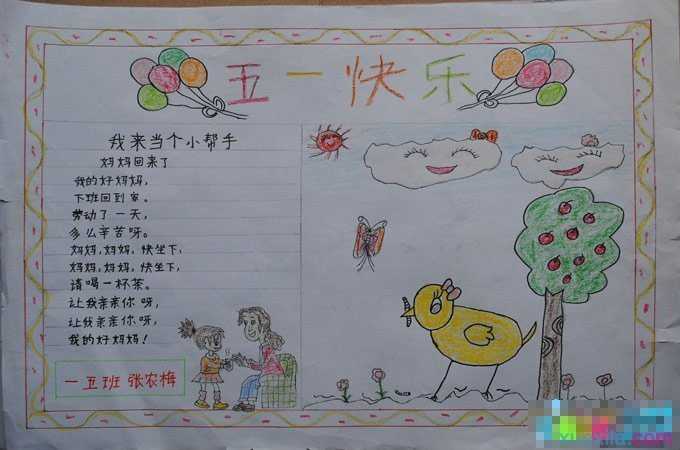 五一快乐
我来当个小帮手
妈妈回来了
我的好妈妈,
下班回到家。
劳动了一天,
多么辛苦呀。
妈妈,妈妈,快坐下,
妈妈,妈妈,快坐下,
请喝一杯茶。
让我亲亲你呀,
让我亲亲你呀,
我的好妈妈!
一五班 张农梅